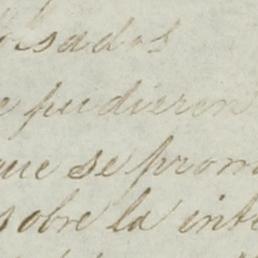 olsados
e pudieron
que se prom
sobre la inte